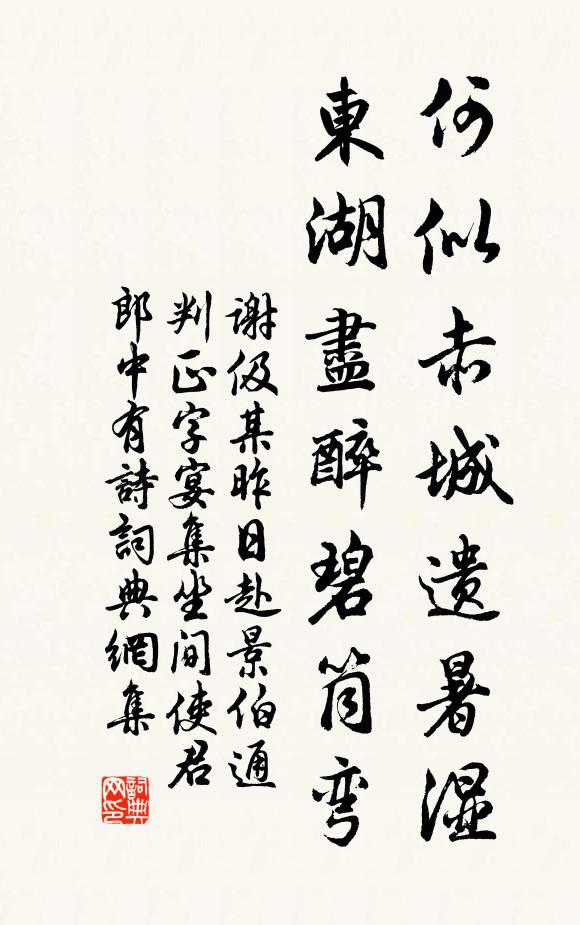 何似赤城遺暑濕
東湖盡醉碧筒彎
謝伋某昨日赴景伯通
判正字宴集坐間使君
郎中有詩詞典網集
詞典網印